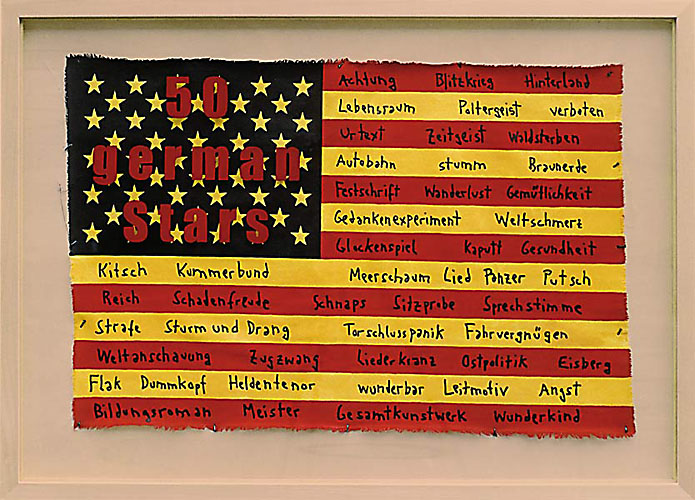 50
german
Stars
Achtung Blitzkrieg Hinterland
Lebensraum Poltergeist verboten
Urtext Zeitgeist Waldsterben
Autobahn stumm Braunerde
Festschrift Wanderlust Gemütlichkeit
Gedankenexperiment Weltschmerz
Glockenspiel kaputt Gesundheit
Kitsch Kummerbund Meerschaum Lied Panzer Putsch
Reich Schadenfreude Schnaps Sitzprobe Sprechstimme
Strafe Sturm und Drang Torschlusspanik Fahrvergnügen
Weltanschauung Zugzwang Liederkranz Ostpolitik Eisberg
Flak Dummkopf Heldentenor wunderbar Leitmotiv Angst
Bildungsroman Meister Gesamtkunstwerk Wunderkind